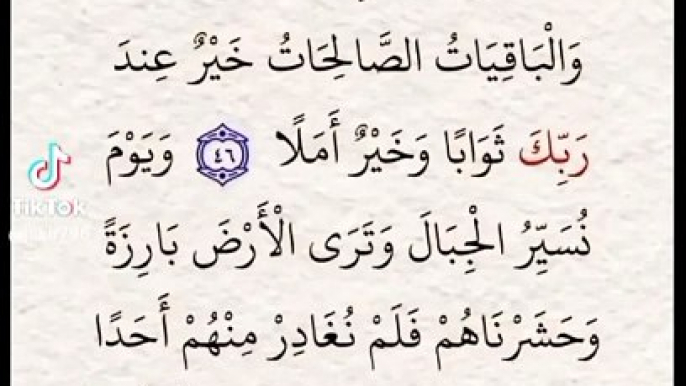 وَالْبَاقِيَاتُ الصَّالِحَاتُ خَيْرٌ عِندَ
رَبِّكَ ثَوَابًا وَخَيْرٌ أَمَلًا ٤٦ وَيَوْمَ
TikTok
نُسَيِّرُ الْجِبَالَ وَتَرَى الْأَرْضَ بَارِزَةً
وَحَشَرْنَاهُمْ فَلَمْ نُغَادِرْ مِنْهُمْ أَحَدًا